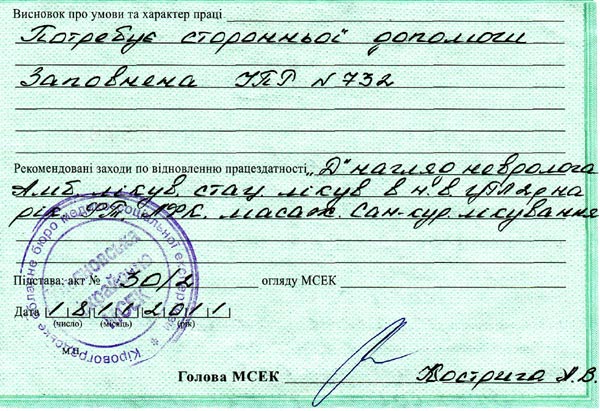 Висновок про умови та характер праці
Потребує сторонньої допомоги
Заповнена ІПР №732
Рекомендовані заходи по відновленню працездатності „Д" нагляд невролога
Амб. лікув. стац лікув в н. в 2р на
рік. ФТ, ЛФК. масаж. Сан-кур. лікування
Підстава: акт № 30/2 огляду МСЕК
Дата 18 11 2011
(число) (місяць) (рік)
М.П.
Голова МСЕК Кострига А.В.
Кіровоградське обласне бюро медико-соціальної експертизи
МСЕК